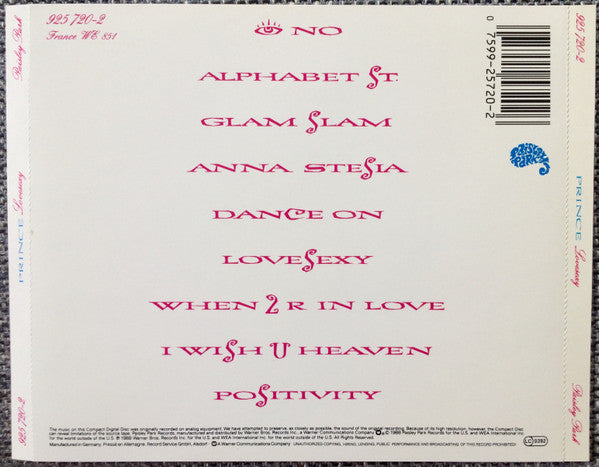 925 720-2
France WE 851
👁 NO
ALPHABET ST.
GLAM SLAM
ANNA STESIA
DANCE ON
LOVESEXY
WHEN 2 R IN LOVE
I WISH U HEAVEN
POSITIVITY
0 7599-25720-2
PAISLEY PARK
925 720-2 PRINCE Lovesexy Paisley Park
925 720-2 PRINCE Lovesexy Paisley Park
The music on this Compact Digital Disc was originally recorded on analog equipment. We have attempted to preserve, as closely as possible, the sound of the original recording. Because of its high resolution, however, the Compact Disc
can reveal limitations of the source tape. Paisley Park Records, manufactured and distributed by Warner Bros. Records Inc., a Warner Communications Company ℗ © 1988 Paisley Park Records for the U.S. and WEA International Inc. for
the world outside of the U.S. ℗ 1988 Warner Bros. Records Inc. for the U.S. and WEA International Inc. for the world outside of the U.S. All Rights Reserved.
Manufactured in Germany. Pressé en Allemagne. Record Service GmbH, Alsdorf. A Warner Communications Company UNAUTHORIZED COPYING, HIRING, LENDING, PUBLIC PERFORMANCE AND BROADCASTING OF THIS RECORD PROHIBITED!
LC 0392